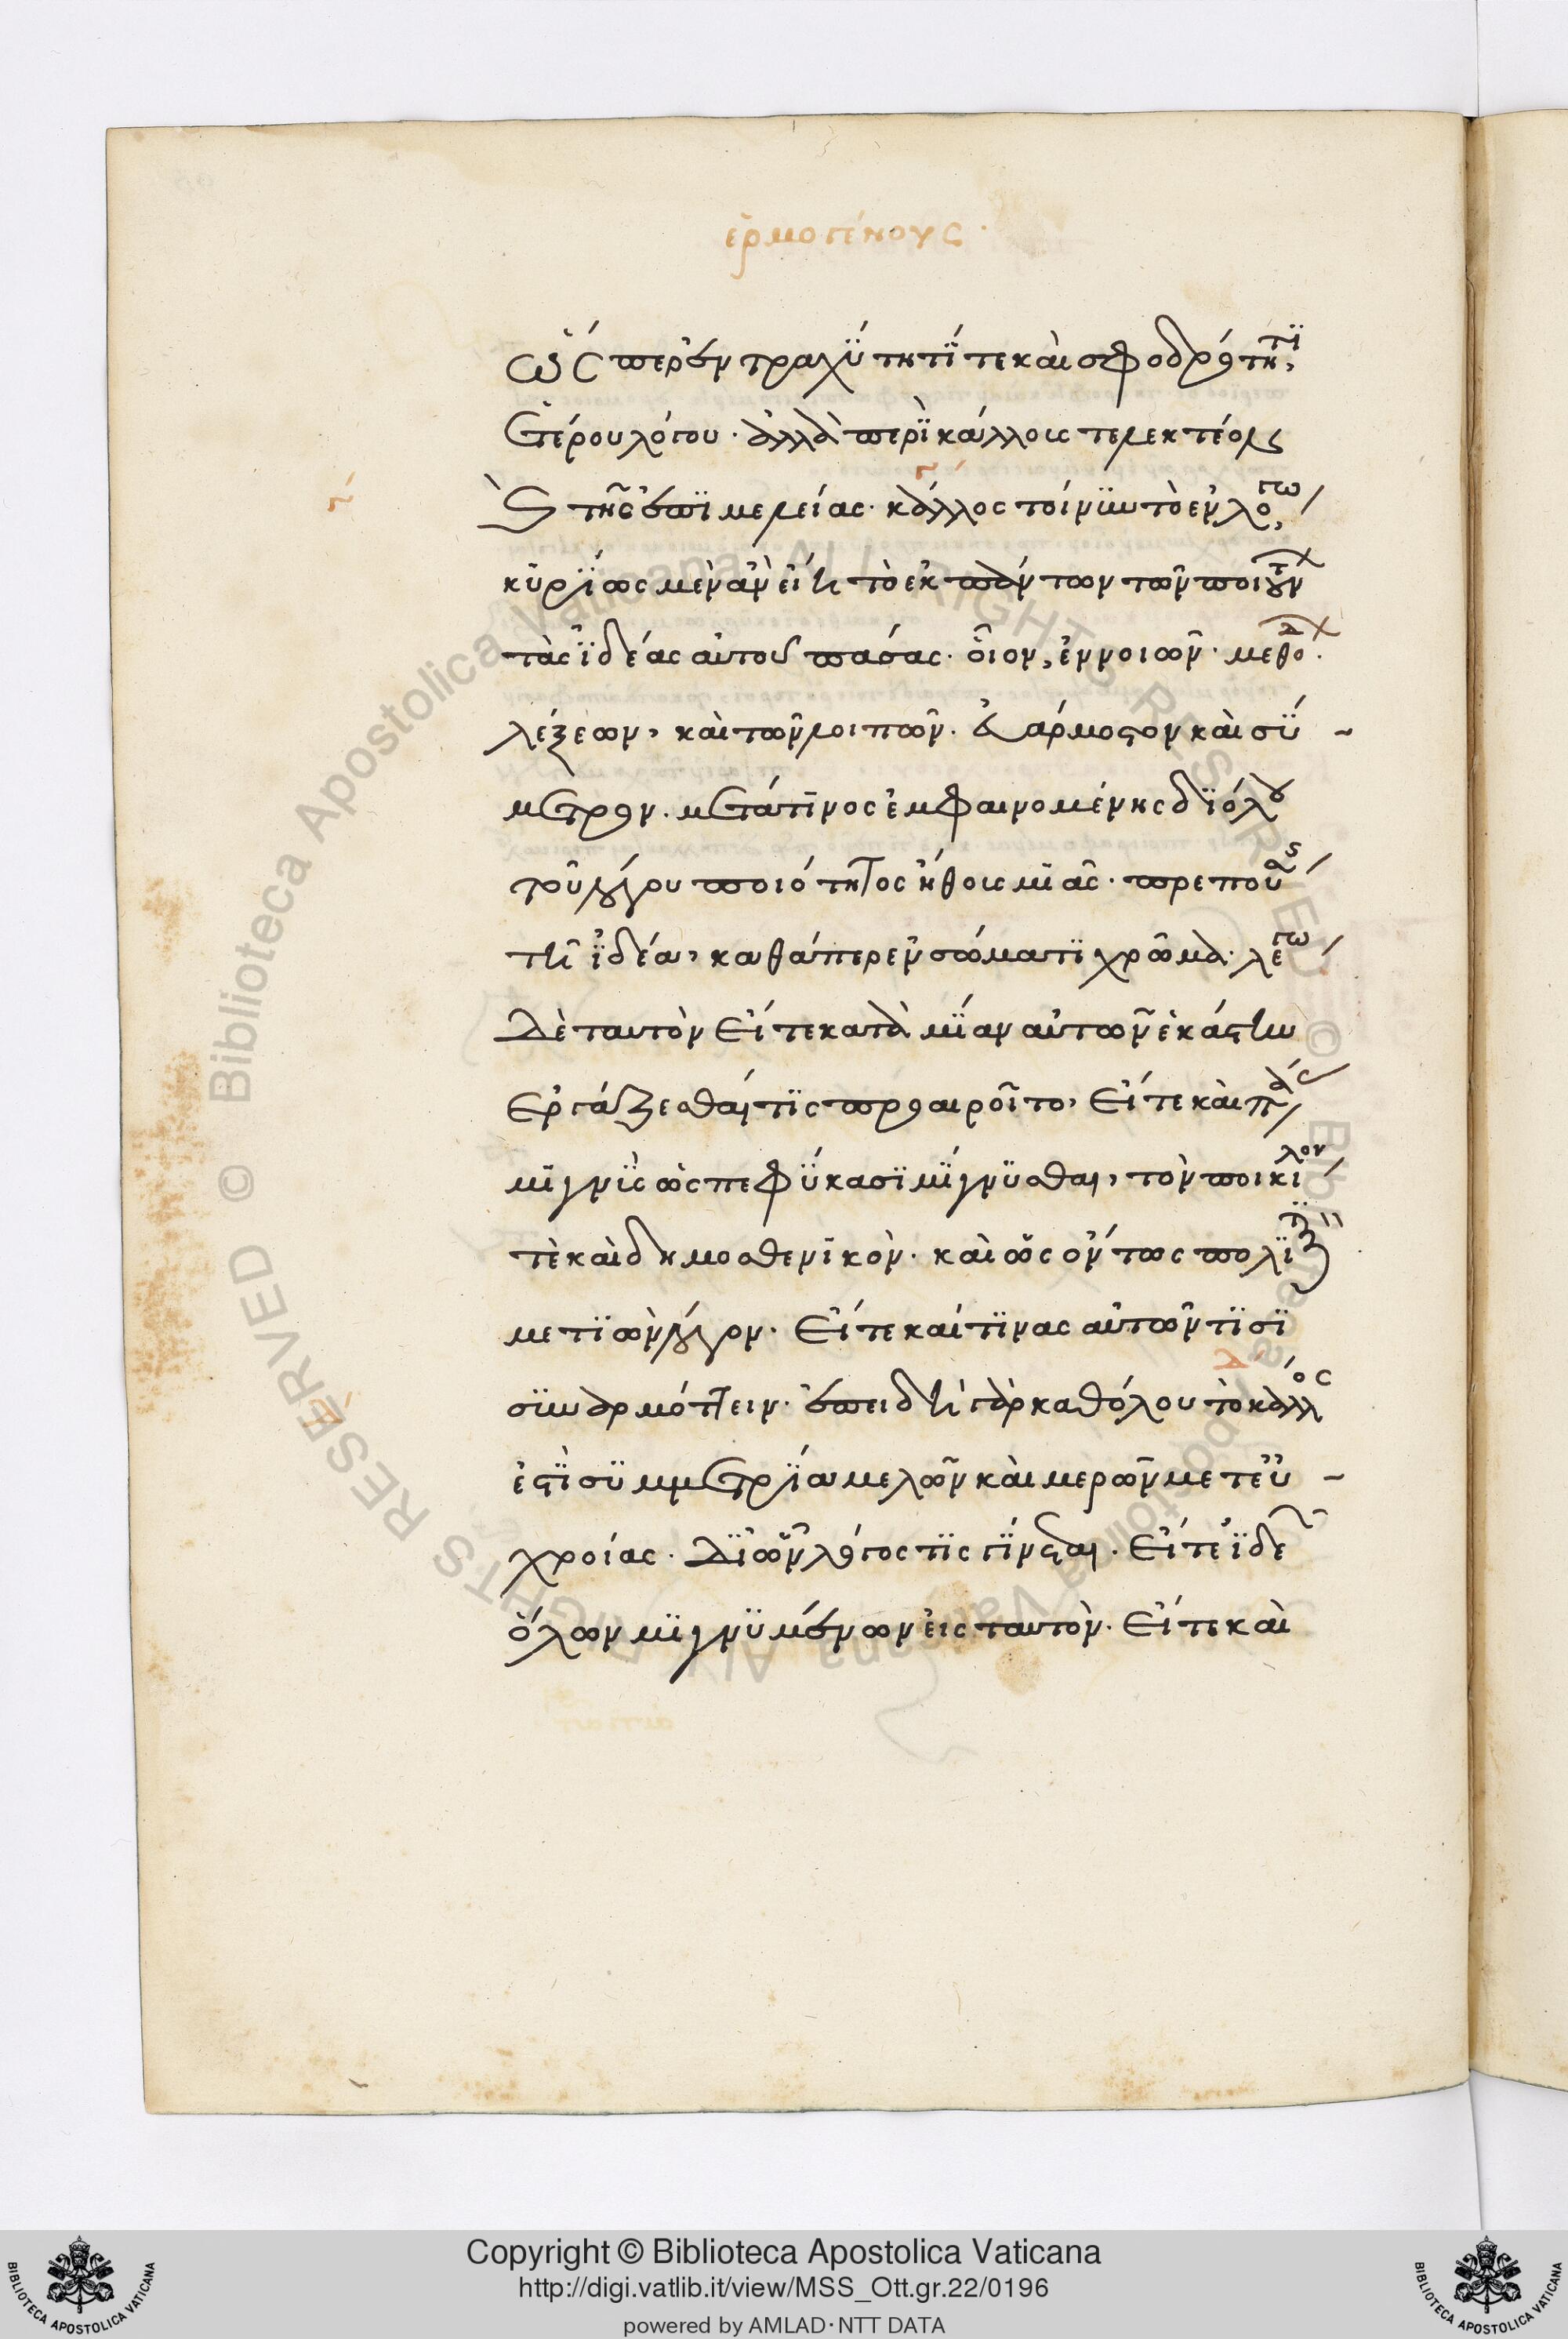 ἑρμογένους ·
ὥσπερ ἐν τραχύτητί τε καὶ σφοδρότητι,
ἑτέρου λόγου · ἀλλὰ περὶ κάλλους γε λεκτέον
καὶ τῆς ἐπιμελείας · κάλλος τοίνυν τὸ ἐν λόγω
κυρίως μὲν ἂν εἴη τὸ ἐκ πάντων τῶν ποιούντων
τὰς ἰδέας αὐτοῦ πάσας · οἷον, ἐννοιῶν · μεθόδ
λέξεων, καὶ τῶν λοιπῶν · εὐάρμοστον καὶ σύ -
μμετρον · μετά τινος ἐμφαινομένης δι' ὅλου
τοῦ λόγου ποιότητος ἤθους μιᾶς · πρεπούσης
τῆ ἰδέα, καθάπερ ἐν σώματι χρῶμα · λέγω
δὲ ταυτὸν εἴτε κατὰ μίαν αὐτῶν ἑκάστην
ἐργάζεσθαί τις προαιροῖτο, εἴτε καὶ πάσας
μιγνὺς ὡς πεφύκασι μίγνυσθαι, τὸν ποικίλον
τὲ καὶ δημοσθενικὸν · καὶ ὡς ὄντως πολιτικὸν
μετιὼν λόγον · εἴτε καί τινας αὐτῶν τισὶ
συναρμόττειν · ἐπειδὴ γὰρ καθόλου τὸ κάλλος
ἐστὶ συμμετρία μελῶν καὶ μερῶν μετ' εὐ -
χροίας · δι' ὧν λόγος τις γίνεται · εἴτε ἰδεῶν
ὅλων μιγνυμένων εἰς ταυτὸν · εἴτε καὶ
Copyright © Biblioteca Apostolica Vaticana
http://digi.vatlib.it/view/MSS_Ott.gr.22/0196
powered by AMLAD·NTT DATA